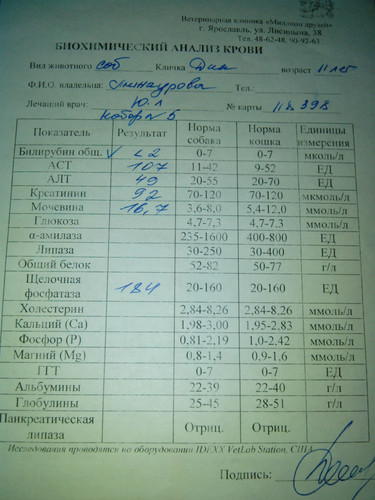 Ветеринарная клиника «Миллион друзей»
г. Ярославль, ул. Лисицына, 38
Тел. 48-62-48, 90-92-63
БИОХИМИЧЕСКИЙ АНАЛИЗ КРОВИ
Вид животного соб Кличка Дик возраст 11 лет
Ф.И.О. владельца: Тел.:
Лечащий врач: Ю.Л № карты 11в398
набор № 5
Показатель Результат Норма собака Норма кошка Единицы измерения
Билирубин общ. √ <2 0-7 0-7 мколь/л
АСТ 107 11-42 9-52 ЕД
АЛТ 49 20-55 20-70 ЕД
Креатинин 92 70-120 70-120 мкмоль/л
Мочевина 16,7 3,6-8,0 5,4-12,0 ммоль/л
Глюкоза 4,7-7,3 4,7-7,3 ммоль/л
α-амилаза 235-1600 400-800 ЕД
Липаза 30-250 30-400 ЕД
Общий белок 52-82 50-77 г/л
Щелочная фосфатаза 184 20-160 20-160 ЕД
Холестерин 2,84-8,26 2,84-8,26 ммоль/л
Кальций (Ca) 1,98-3,00 1,95-2,83 ммоль/л
Фосфор (P) 0,81-2,19 1,0-2,42 ммоль/л
Магний (Mg) 0,8-1,4 0,9-1,6 ммоль/л
ГГТ 0-7 0-7 ЕД
Альбумины 22-39 22-40 г/л
Глобулины 25-45 28-51 г/л
Панкреатическая липаза Отриц. Отриц.
Исследования проводятся на оборудовании IDEXX VetLab Station, США
Подпись: